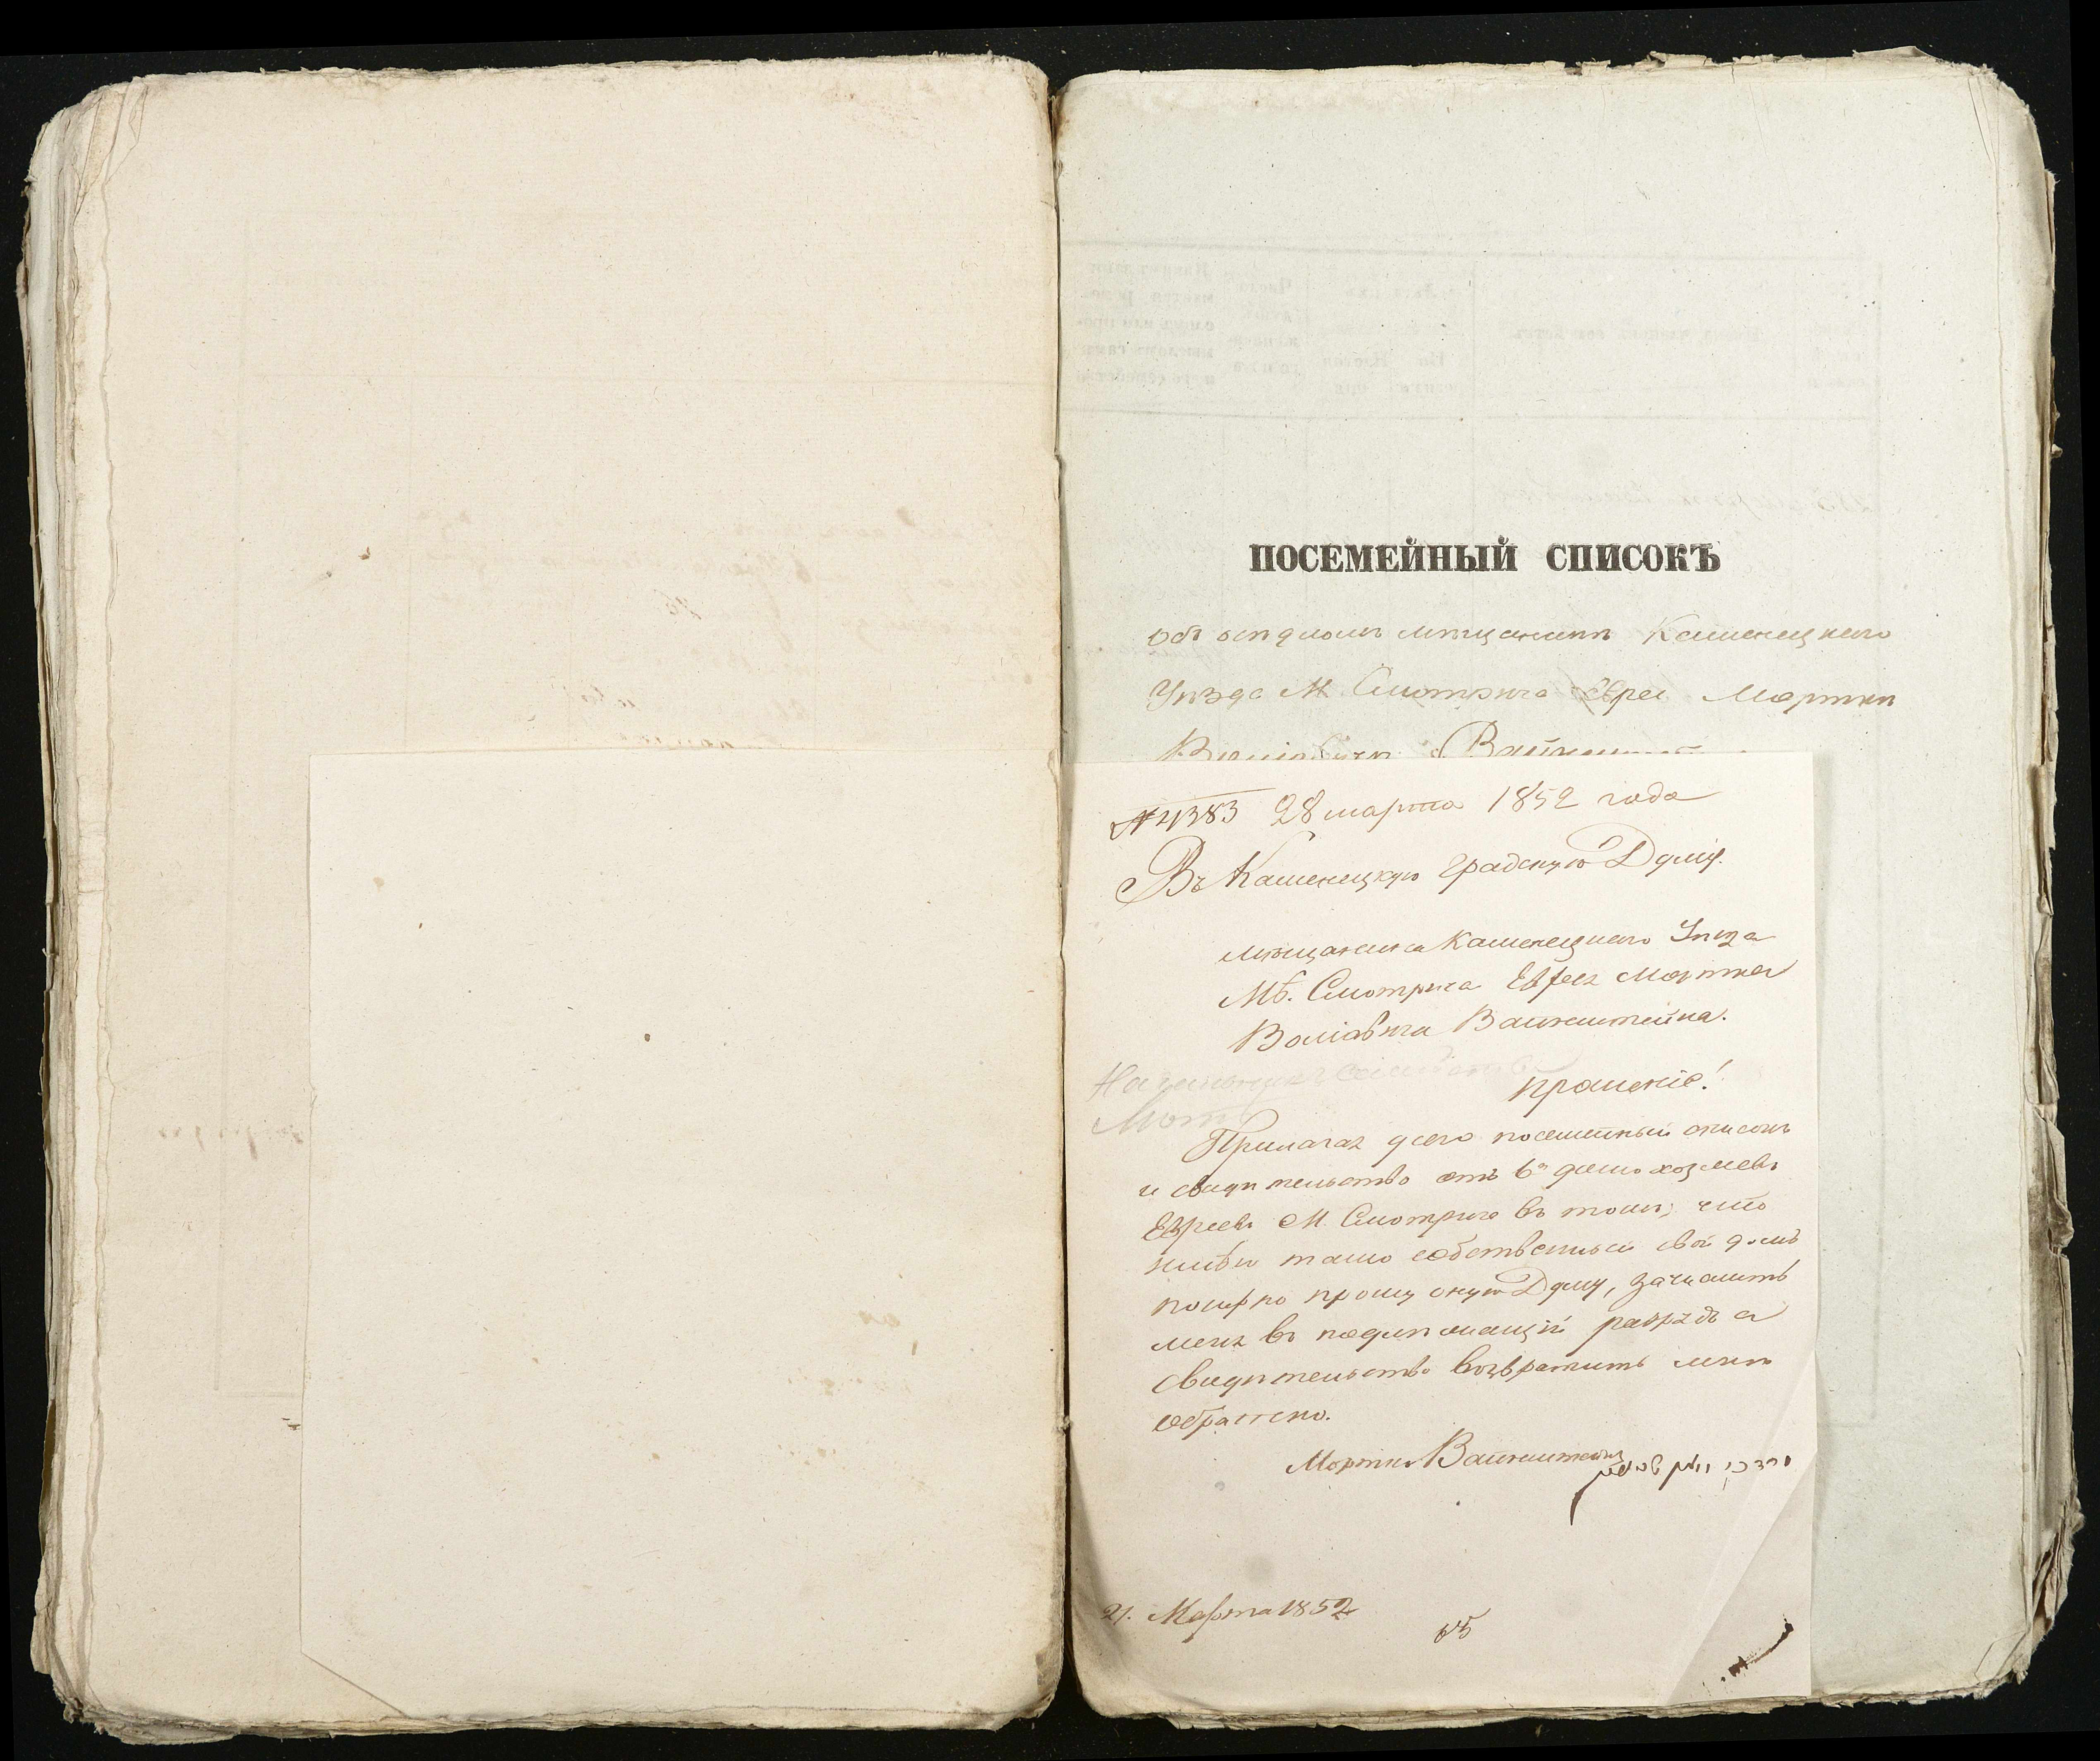 ПОСЕМЕЙНЫЙ СПИСОКЪ
Объ осѣдломъ мѣщанинѣ Каменецкаго
Уѣзда М. Смотрича Еврея Мортки
Вайнштей
№ 4383 28 марта 1852 года
Въ Каменецкую Градскую Думу.
мѣщанина Каменецкаго Уѣзда
Мѣ. Смотрича Еврея Мортка
Вайнштейна.
прошеніе!
Прилагая у сего посемейный списокъ
и свидѣтельство отъ 6ти домохозяевъ
Евреевъ М. Смотрича въ томъ, что
имѣю тамо собственный свой домъ
покорно прошу оную Думу, зачислить
меня въ подлежащій разрядъ а
свидѣтельство возвратить мнѣ
обратно.
Мортко Вайнштейнъ
21. Марта 1852